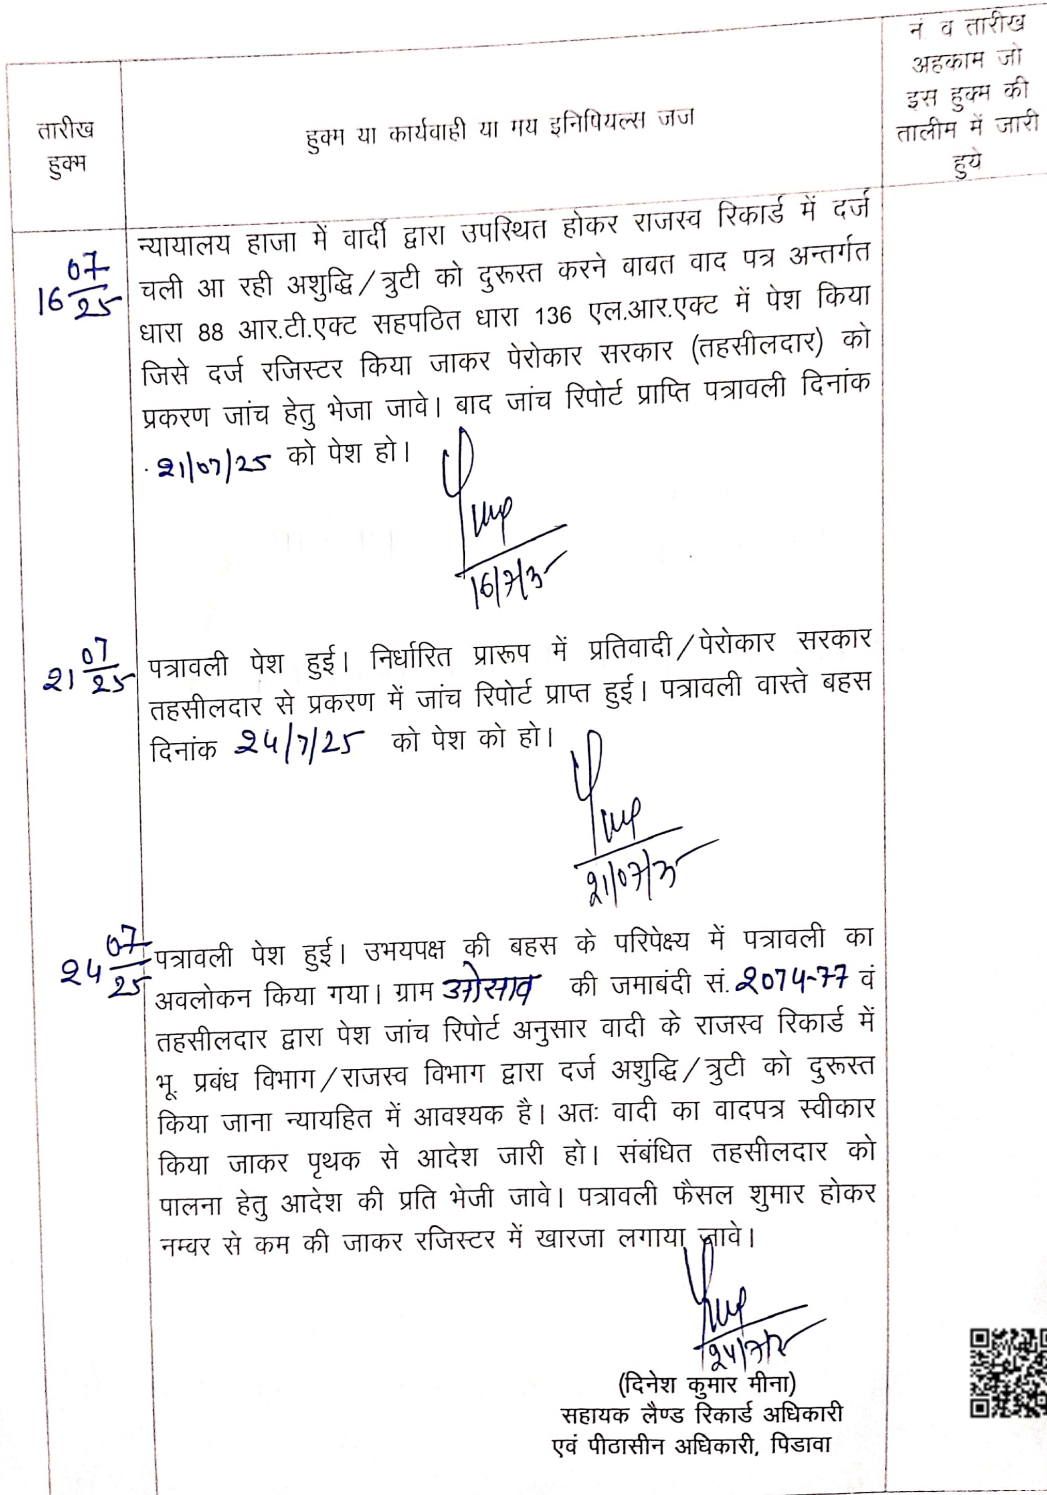 तारीख
हुक्म
हुक्म या कार्यवाही या मय इनिषियल्स जज
नं व तारीख
अहकाम जो
इस हुक्म की
तालीम में जारी
हुये
16 07/25
न्यायालय हाजा में वार्दी द्वारा उपस्थित होकर राजस्व रिकार्ड में दर्ज
चली आ रही अशुद्धि/त्रुटी को दुरूस्त करने बावत वाद पत्र अन्तर्गत
धारा 88 आर.टी.एक्ट सहपठित धारा 136 एल.आर.एक्ट में पेश किया
जिसे दर्ज रजिस्टर किया जाकर पेरोकार सरकार (तहसीलदार) को
प्रकरण जांच हेतु भेजा जावे। बाद जांच रिपोर्ट प्राप्ति पत्रावली दिनांक
21/07/25 को पेश हो।
21 07/25
पत्रावली पेश हुई। निर्धारित प्रारूप में प्रतिवादी/पेरोकार सरकार
तहसीलदार से प्रकरण में जांच रिपोर्ट प्राप्त हुई। पत्रावली वास्ते बहस
दिनांक 24/7/25 को पेश को हो।
24 07/25
पत्रावली पेश हुई। उभयपक्ष की बहस के परिपेक्ष्य में पत्रावली का
अवलोकन किया गया। ग्राम ओसाव की जमाबंदी सं. 2074-77 वं
तहसीलदार द्वारा पेश जांच रिपोर्ट अनुसार वादी के राजस्व रिकार्ड में
भू. प्रबंध विभाग/राजस्व विभाग द्वारा दर्ज अशुद्धि/त्रुटी को दुरूस्त
किया जाना न्यायहित में आवश्यक है। अतः वादी का वादपत्र स्वीकार
किया जाकर पृथक से आदेश जारी हो। संबंधित तहसीलदार को
पालना हेतु आदेश की प्रति भेजी जावे। पत्रावली फैसल शुमार होकर
नम्वर से कम की जाकर रजिस्टर में खारजा लगाया जावे।
(दिनेश कुमार मीना)
सहायक लैण्ड रिकार्ड अधिकारी
एवं पीठासीन अधिकारी, पिडावा